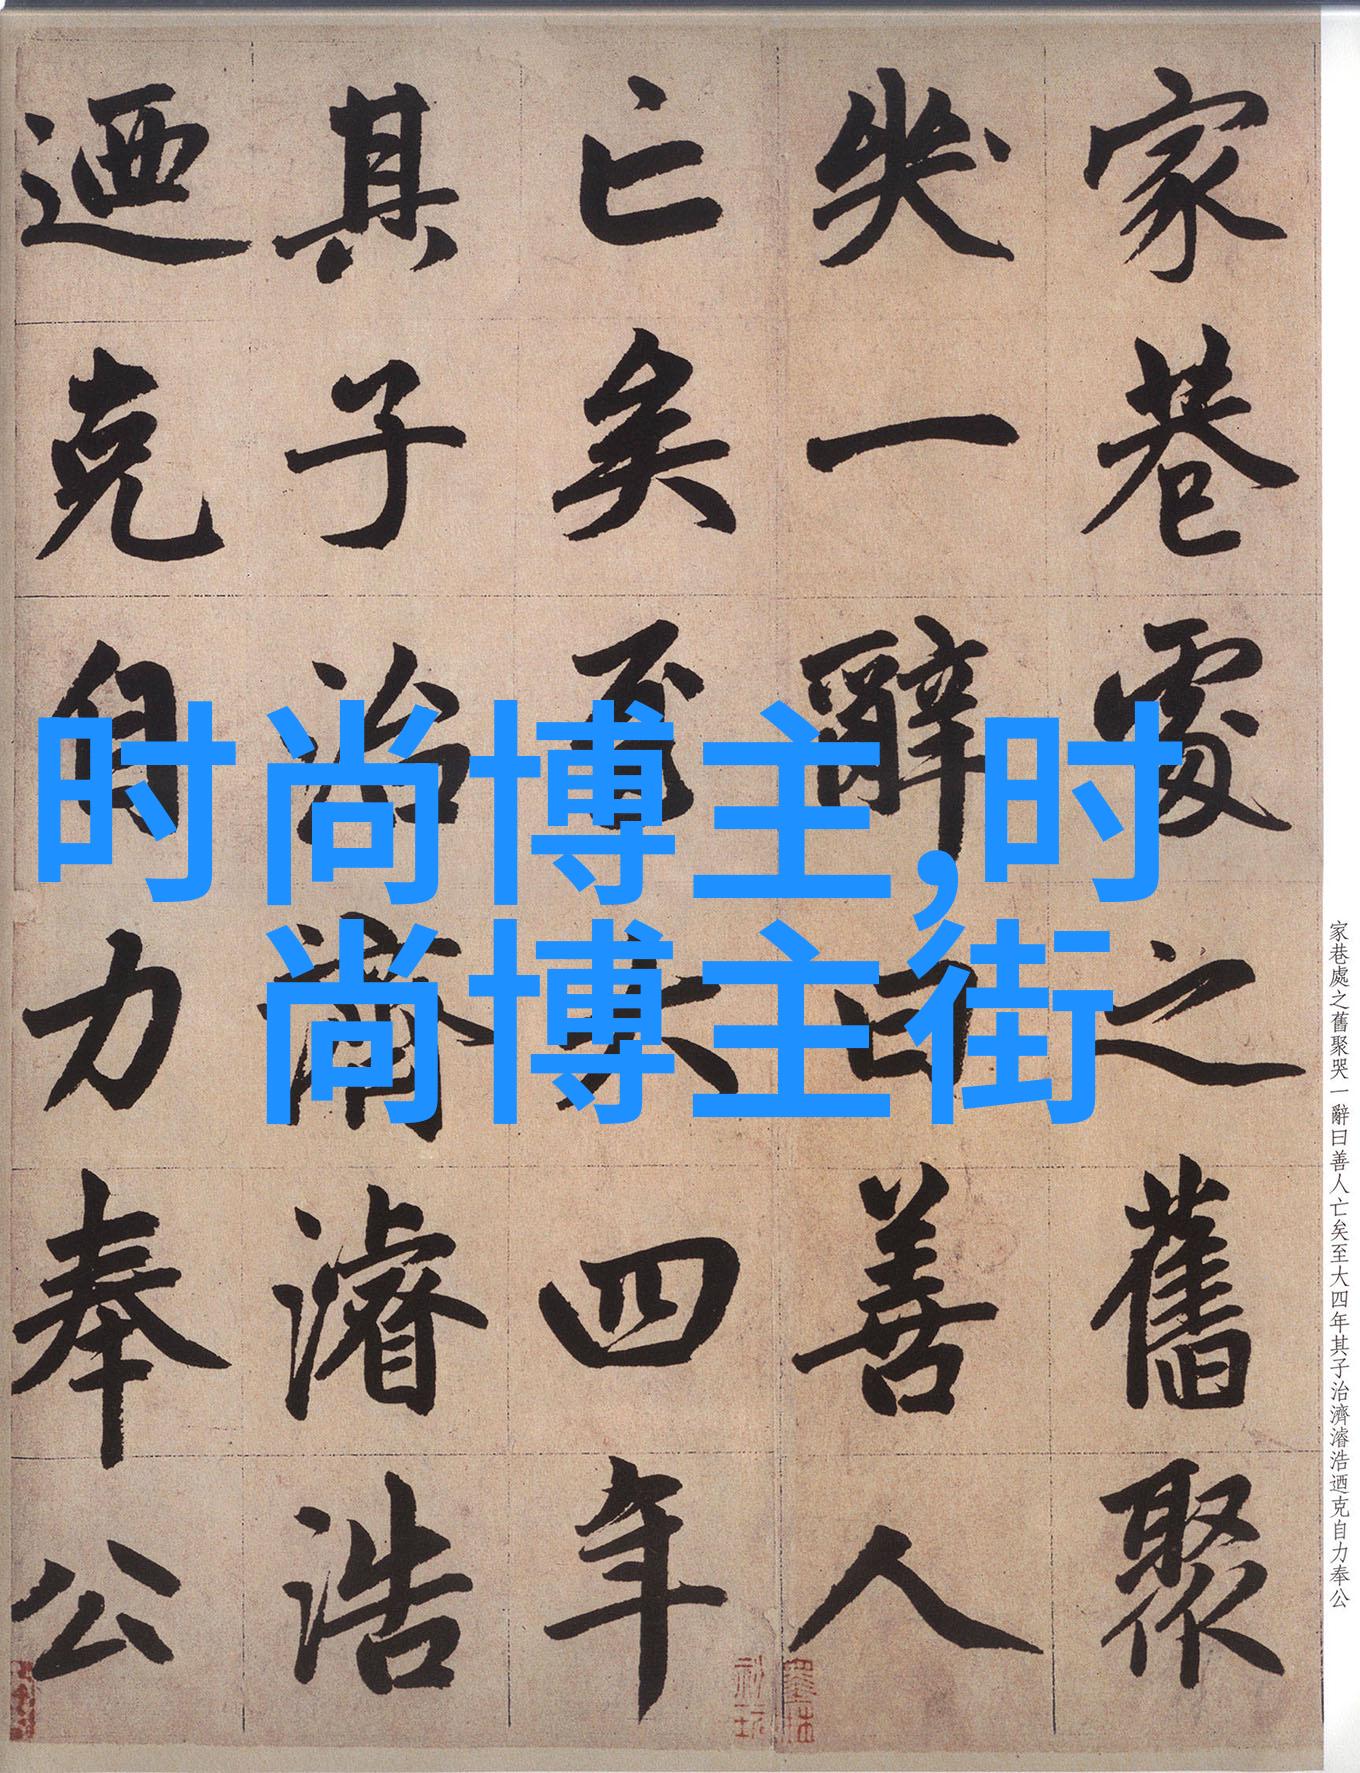 家巷處之舊聚
哭一辭曰善人
亡矣至大四年
其子治濟濬浩
迺克自力奉公
时尚博主,时
尚博主街
家巷處之舊聚哭一辭曰善人亡矣至大四年其子治濟濬浩迺克自力奉公